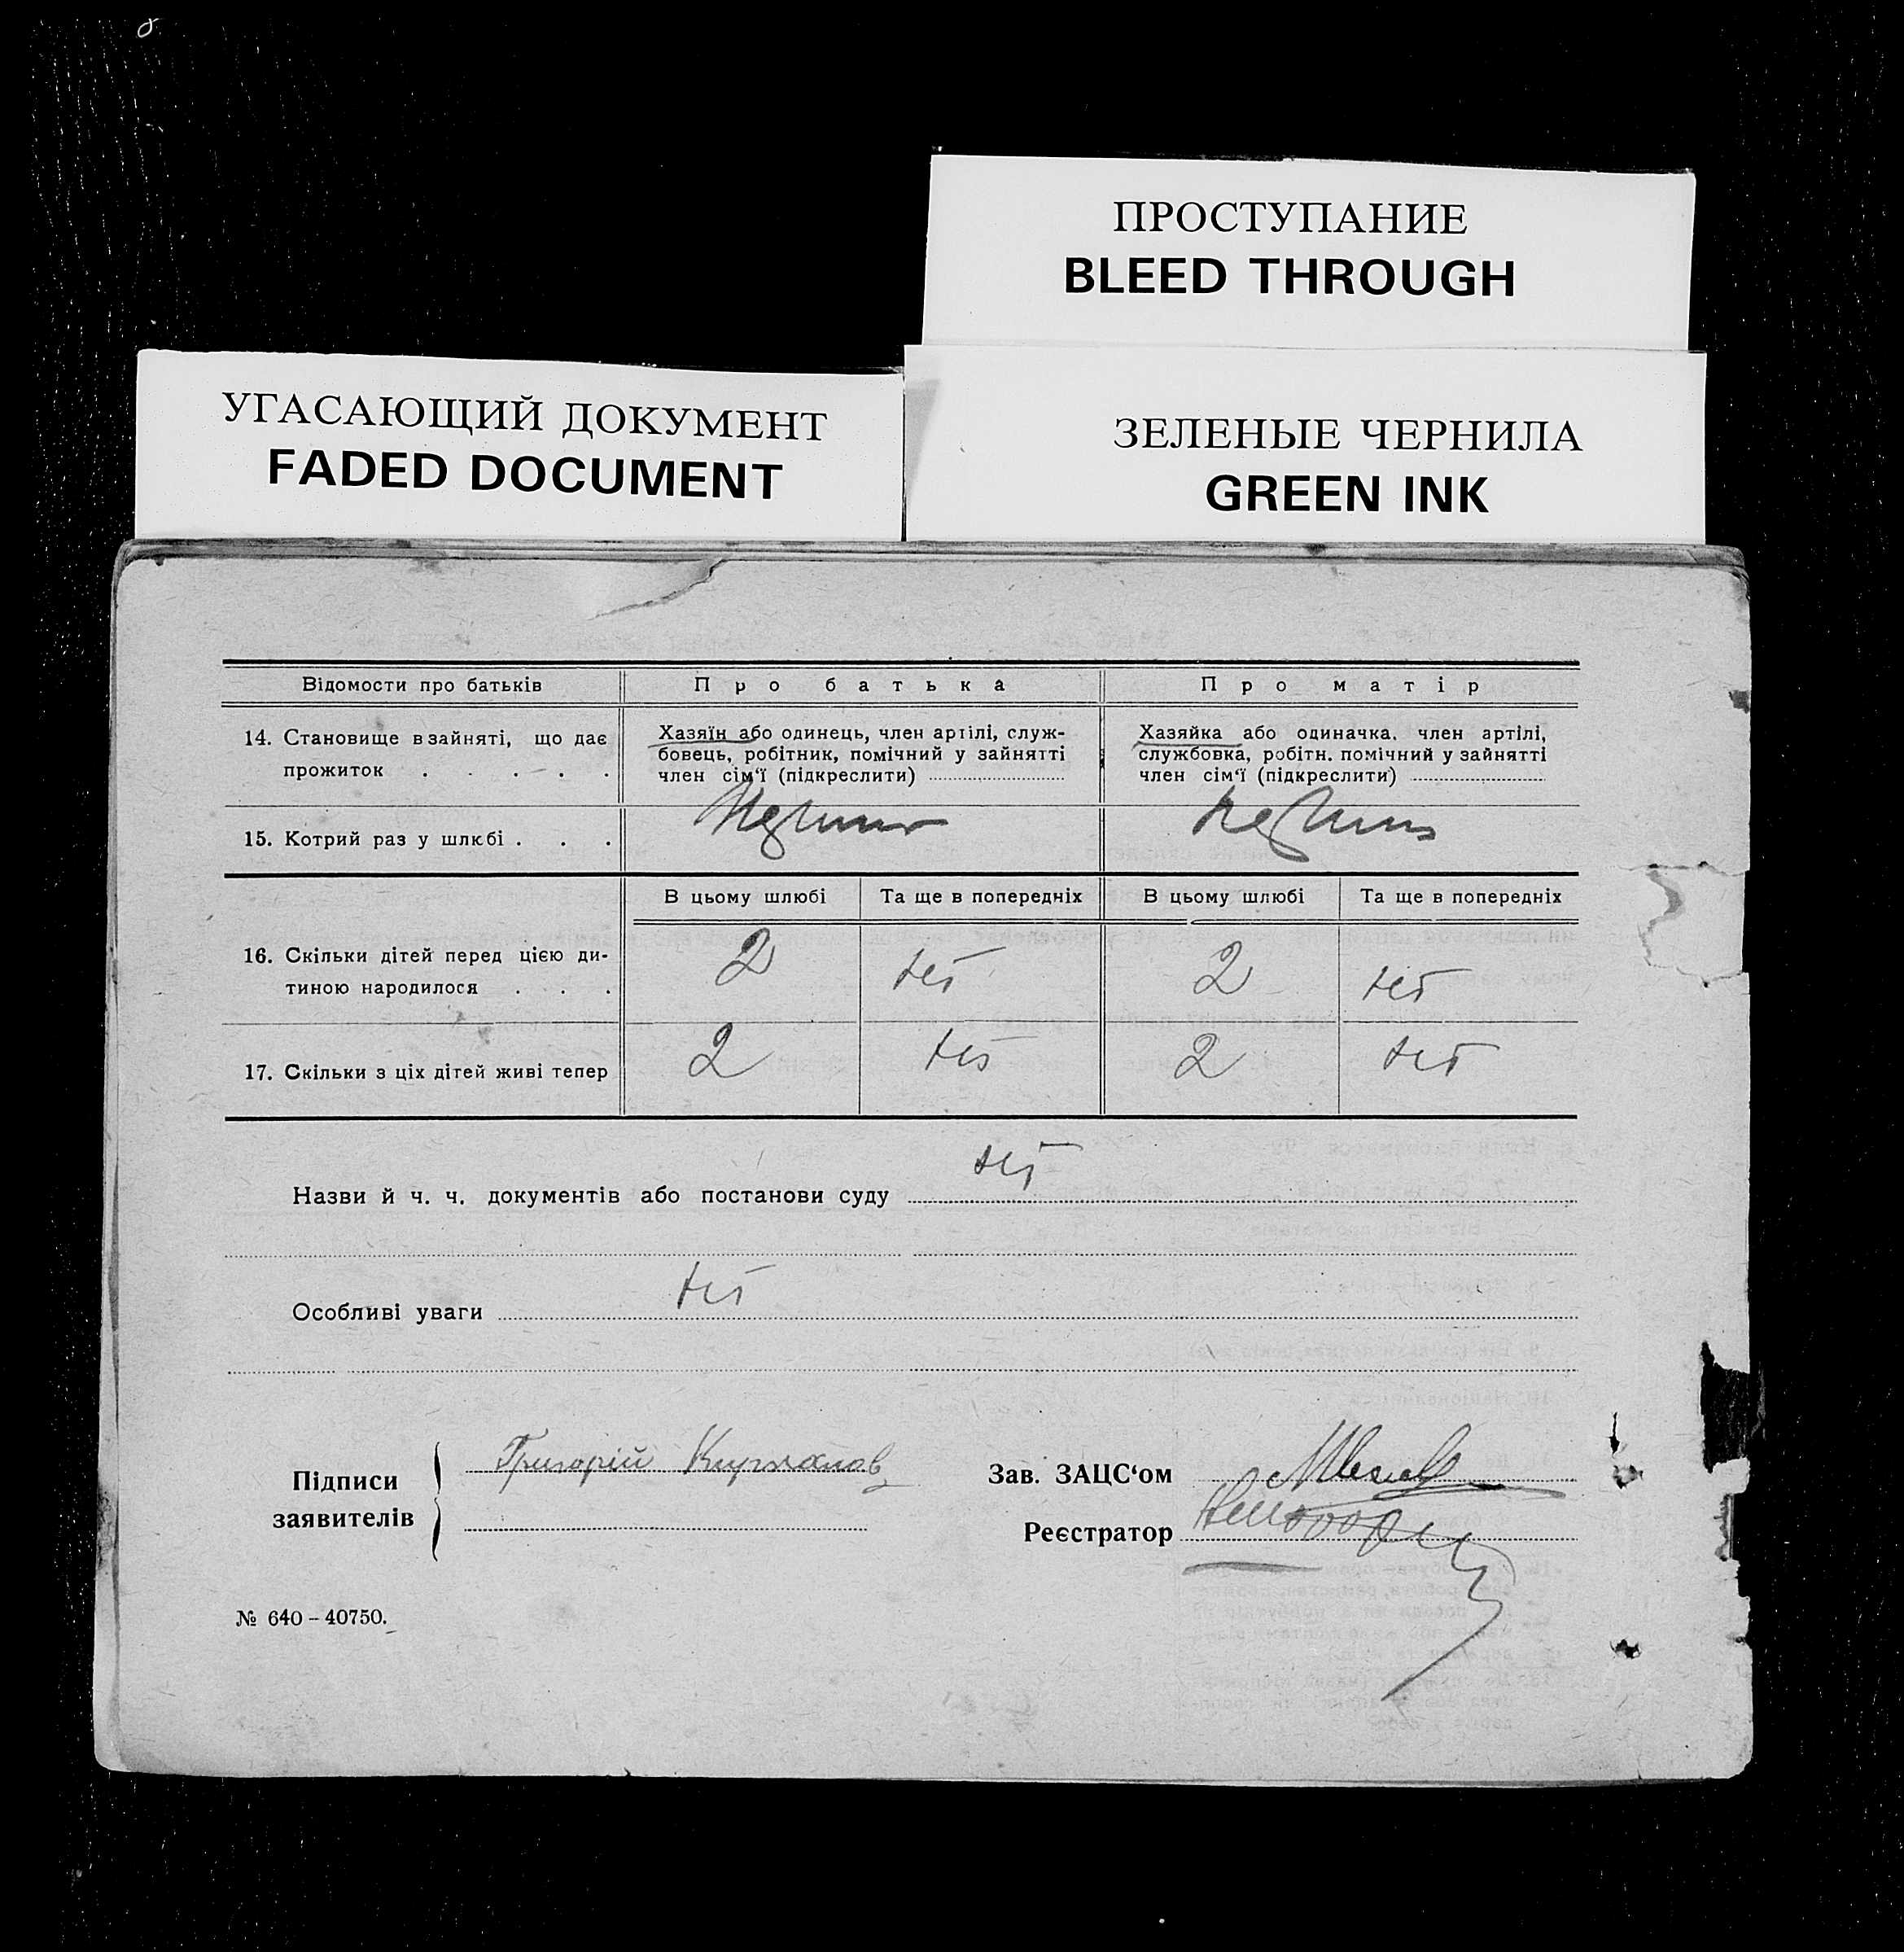 ПРОСТУПАНИЕ
BLEED THROUGH
УГАСАЮЩИЙ ДОКУМЕНТ
FADED DOCUMENT
ЗЕЛЕНЫЕ ЧЕРНИЛА
GREEN INK
Відомости про батьків Про батька Про матір
14. Становище в зайняті, що дає прожиток . . . . .
Хазяїн або одинець, член артілі, служ-
бовець, робітник, помічний у зайнятті
член сім‘ї (підкреслити)
Хазяйка або одиначка, член артілі,
службовка, робітн. помічний у зайнятті
член сім‘ї (підкреслити)
15. Котрий раз у шлюбі . . .
В цьому шлюбі Та ще в попередніх В цьому шлюбі Та ще в попередніх
16. Скільки дітей перед цією ди-
тиною народилося . . .
2 ні 2 ні
17. Скільки з ціх дітей живі тепер 2 ні 2 ні
Назви й ч. ч. документів або постанови суду ні
Особливі уваги ні
Підписи
заявителів
Григорій
Зав. ЗАЦС‘ом
Реєстратор
№ 640 – 40750.